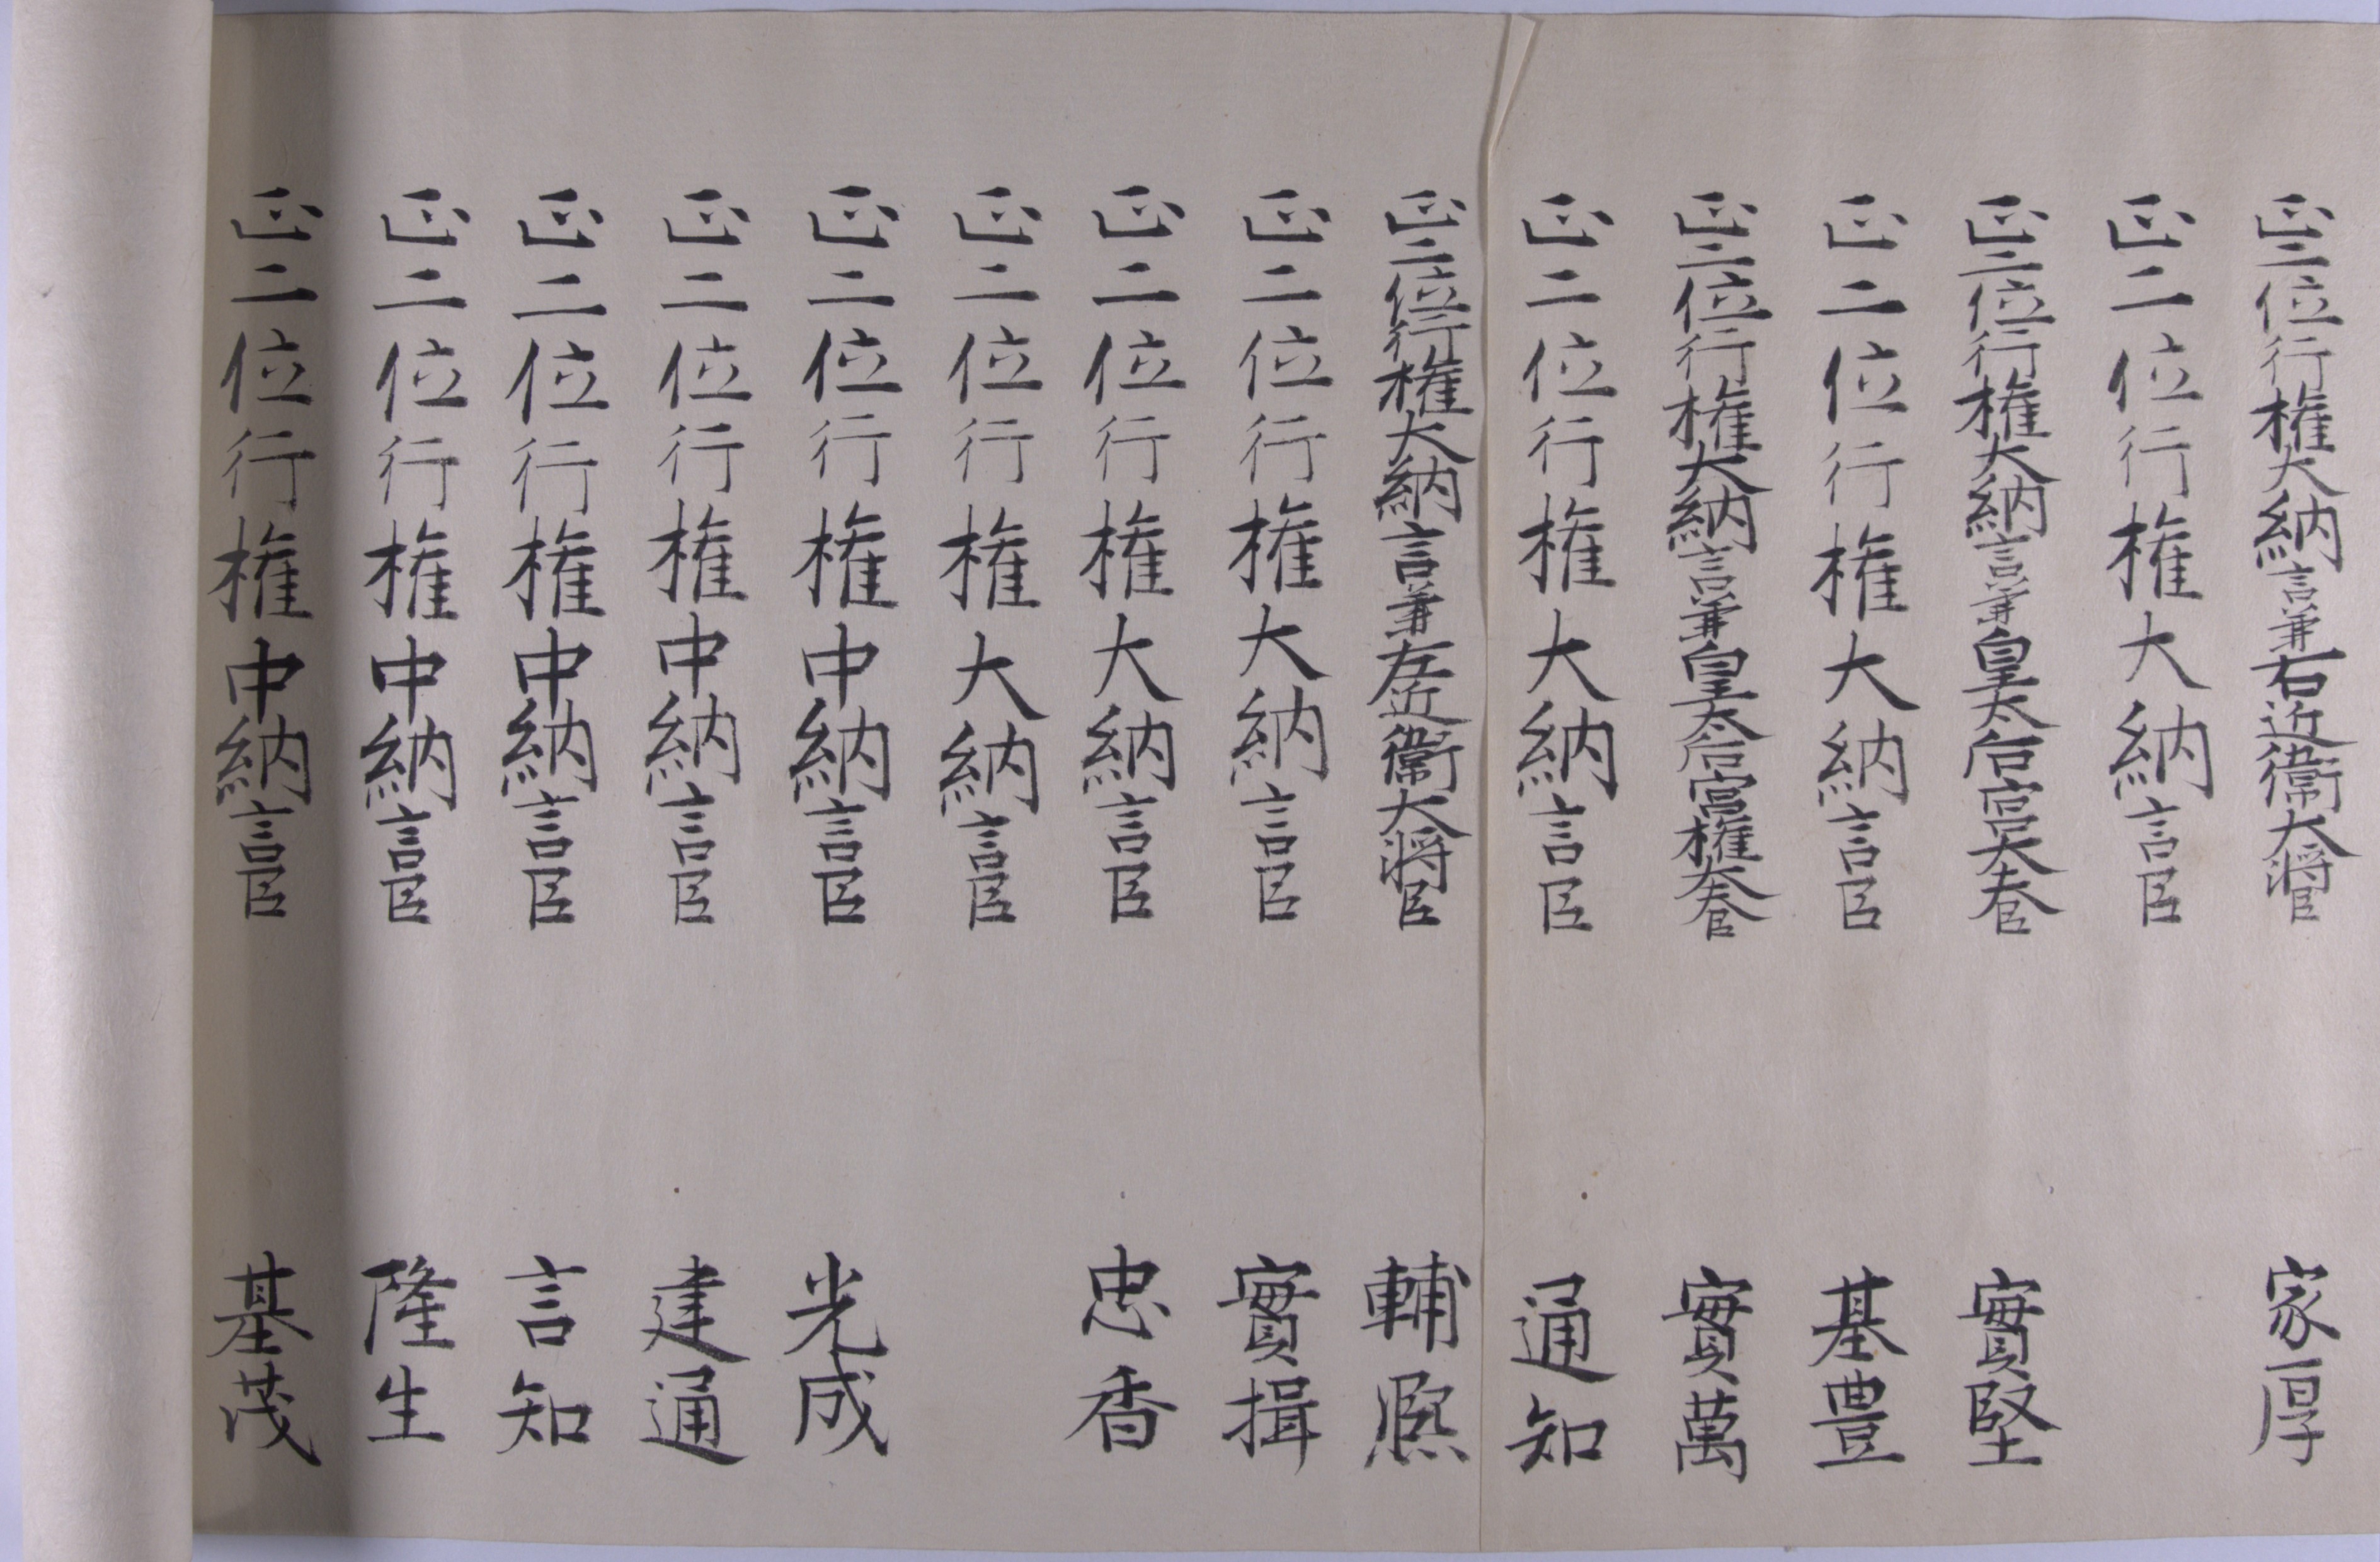 正二位行権大納言兼右近衛大将臣 家厚
正二位行権大納言臣
正二位行権大納言兼皇太后宮大夫臣 實堅
正二位行権大納言臣 基豊
正二位行権大納言兼皇太后宮権大夫臣 實萬
正二位行権大納言臣 通知
正二位行権大納言兼左近衛大将臣 輔熈
正二位行権大納言臣 實揖
正二位行権大納言臣 忠香
正二位行権大納言臣
正二位行権中納言臣 光成
正二位行権中納言臣 建通
正二位行権中納言臣 言知
正二位行権中納言臣 隆生
正二位行権中納言臣 基茂